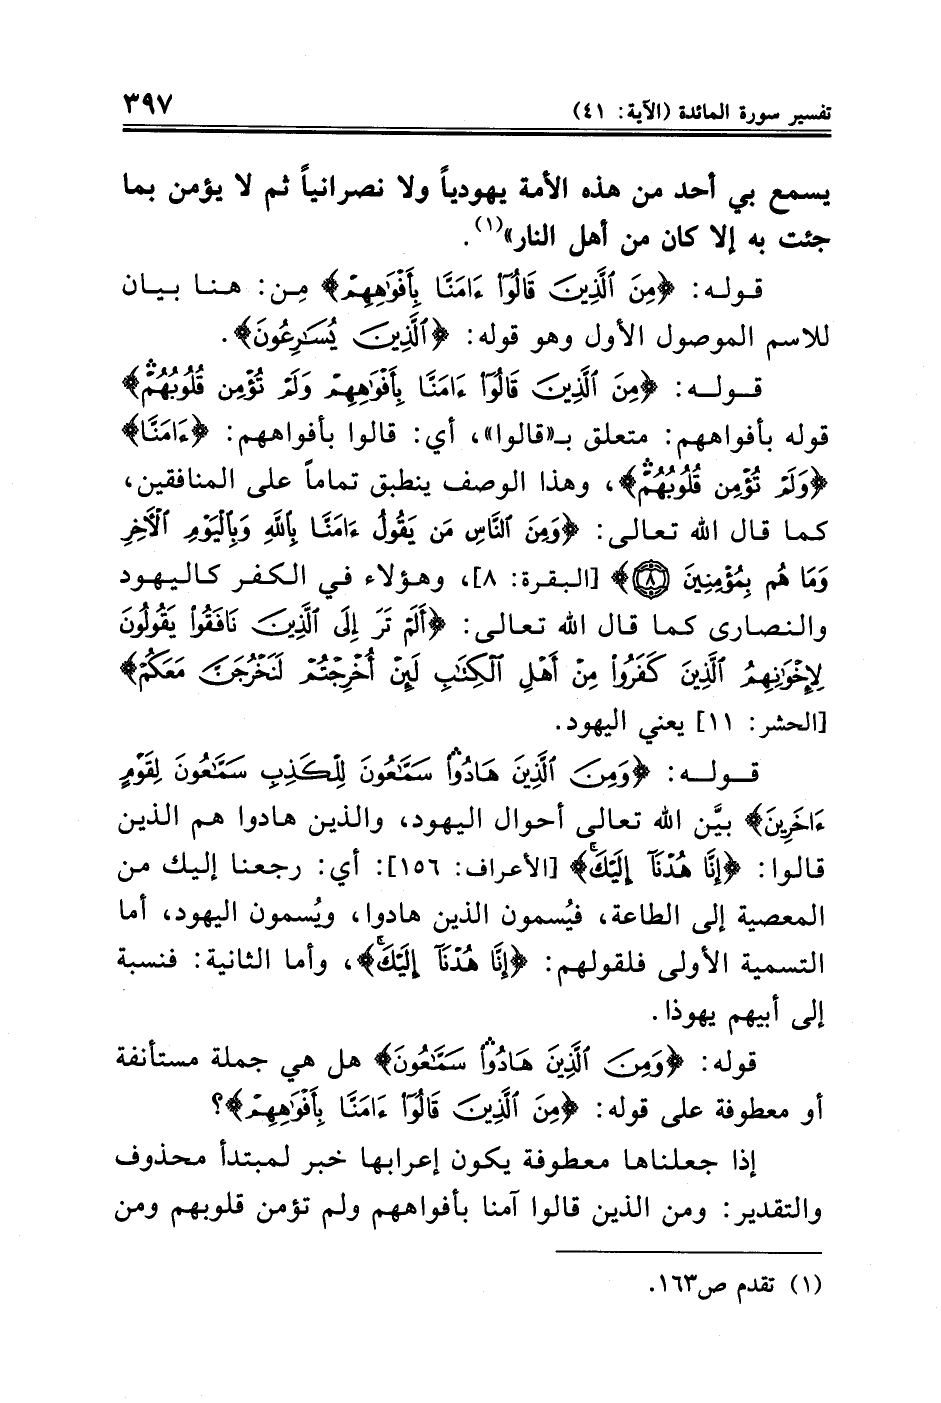 تفسير سورة المائدة (الآية: ٤١) ٣٩٧
يسمع بي أحد من هذه الأمة يهودياً ولا نصرانياً ثم لا يؤمن بما
جئت به إلا كان من أهل النار»(١).
قوله: ﴿مِنَ ٱلَّذِينَ قَالُوٓا۟ ءَامَنَّا بِأَفْوَٰهِهِمْ﴾ مِن: هنا بيان
للاسم الموصول الأول وهو قوله: ﴿ٱلَّذِينَ يُسَٰرِعُونَ﴾.
قوله: ﴿مِنَ ٱلَّذِينَ قَالُوٓا۟ ءَامَنَّا بِأَفْوَٰهِهِمْ وَلَمْ تُؤْمِن قُلُوبُهُمْ ۛ﴾
قوله بأفواههم: متعلق بـ«قالوا»، أي: قالوا بأفواههم: ﴿ءَامَنَّا﴾
﴿وَلَمْ تُؤْمِن قُلُوبُهُمْ ۛ﴾، وهذا الوصف ينطبق تماماً على المنافقين،
كما قال الله تعالى: ﴿وَمِنَ ٱلنَّاسِ مَن يَقُولُ ءَامَنَّا بِٱللَّهِ وَبِٱلْيَوْمِ ٱلْـَٔاخِرِ
وَمَا هُم بِمُؤْمِنِينَ ٨﴾ [البقرة: ٨]، وهؤلاء في الكفر كاليهود
والنصارى كما قال الله تعالى: ﴿أَلَمْ تَرَ إِلَى ٱلَّذِينَ نَافَقُوا۟ يَقُولُونَ
لِإِخْوَٰنِهِمُ ٱلَّذِينَ كَفَرُوا۟ مِنْ أَهْلِ ٱلْكِتَٰبِ لَئِنْ أُخْرِجْتُمْ لَنَخْرُجَنَّ مَعَكُمْ﴾
[الحشر: ١١] يعني اليهود.
قوله: ﴿وَمِنَ ٱلَّذِينَ هَادُوا۟ ۛ سَمَّٰعُونَ لِلْكَذِبِ سَمَّٰعُونَ لِقَوْمٍ
ءَاخَرِينَ﴾ بيَّن الله تعالى أحوال اليهود، والذين هادوا هم الذين
قالوا: ﴿إِنَّا هُدْنَآ إِلَيْكَ ۚ﴾ [الأعراف: ١٥٦]: أي: رجعنا إليك من
المعصية إلى الطاعة، فيُسمون الذين هادوا، ويُسمون اليهود، أما
التسمية الأولى فلقولهم: ﴿إِنَّا هُدْنَآ إِلَيْكَ ۚ﴾، وأما الثانية: فنسبة
إلى أبيهم يهوذا.
قوله: ﴿وَمِنَ ٱلَّذِينَ هَادُوا۟ ۛ سَمَّٰعُونَ﴾ هل هي جملة مستأنفة
أو معطوفة على قوله: ﴿مِنَ ٱلَّذِينَ قَالُوٓا۟ ءَامَنَّا بِأَفْوَٰهِهِمْ﴾؟
إذا جعلناها معطوفة يكون إعرابها خبر لمبتدأ محذوف
والتقدير: ومن الذين قالوا آمنا بأفواههم ولم تؤمن قلوبهم ومن
(١) تقدم ص١٦٣.